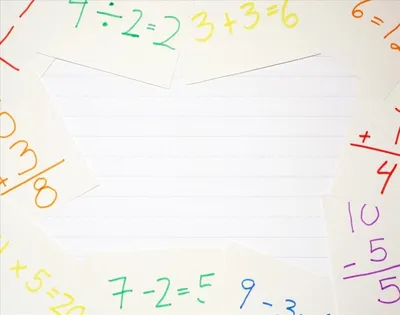 4÷2=2
3+3=6
6=1
3
8
+1
4
10
-5
5
4×5=20
7-2=5
9-3